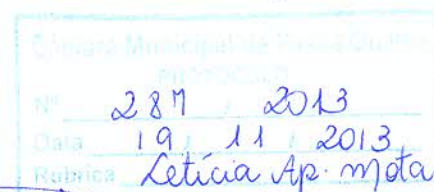 Câmara Municipal de Passa Quatro
PROTOCOLO
Nº 287 / 2013
Data 19 / 11 / 2013
Rubrica Letícia Ap. Mota